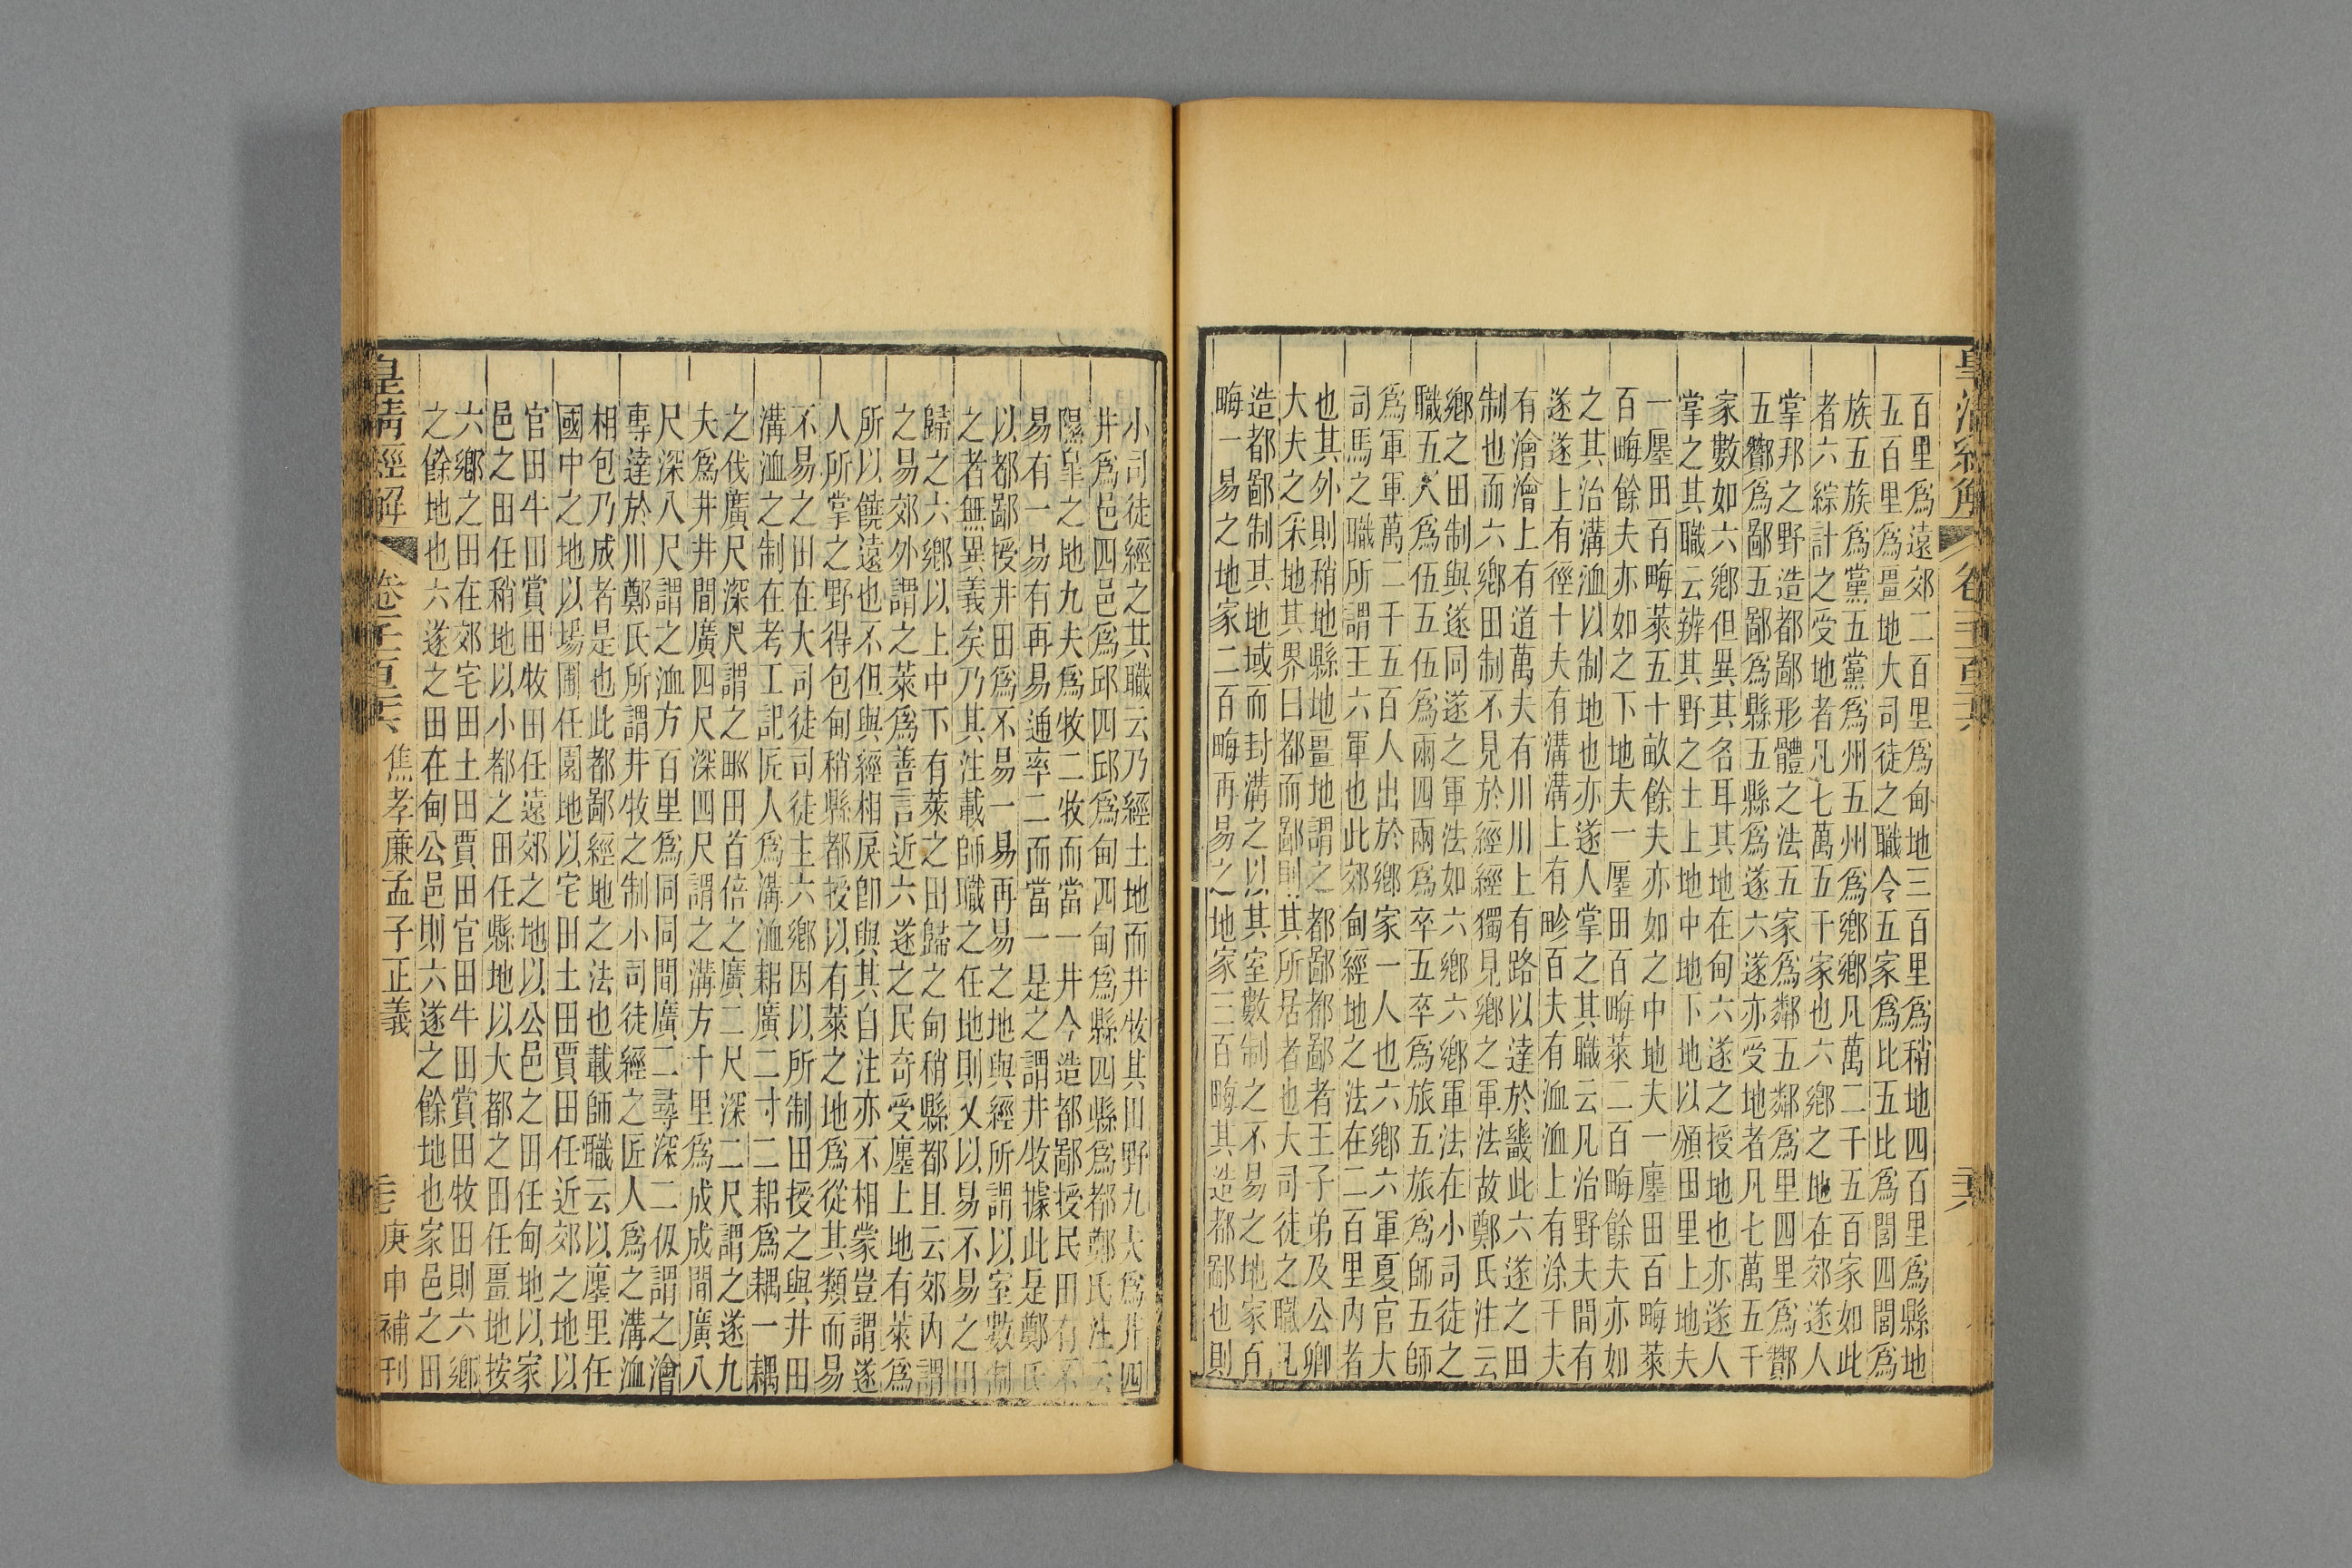 百里爲遠郊二百里爲甸地三百里爲稍地四百里爲縣地
五百里爲畺地大司徒之職令五家爲比五比爲閭四閭爲
族五族爲黨五黨爲州五州爲鄉鄉凡萬二千五百家如此
者六綜計之受地者凡七萬五千家也六鄉之地在郊遂人
掌邦之野造都鄙形體之法五家爲鄰五鄰爲里四里爲酇
五酇爲鄙五鄙爲縣五縣爲遂六遂亦受地者凡七萬五千
家數如六鄉但異其名耳其地在甸六遂之授地也亦遂人
掌之其職云辨其野之土上地中地下地以頒田里上地夫
一廛田百畮萊五十畝餘夫亦如之中地夫一廛田百畮萊
百畮餘夫亦如之下地夫一廛田百畮萊二百畮餘夫亦如
之其治溝洫以制地也亦遂人掌之其職云凡治野夫間有
遂遂上有徑十夫有溝溝上有畛百夫有洫洫上有涂千夫
有澮澮上有道萬夫有川川上有路以達於畿此六遂之田
制也而六鄉田制不見於經經獨見鄉之軍法故鄭氏注云
鄉之田制與遂同遂之軍法如六鄉六鄉軍法在小司徒之
職五人爲伍五伍爲兩四兩爲卒五卒爲旅五旅爲師五師
爲軍軍萬二千五百人出於鄉家一人也六鄉六軍夏官大
司馬之職所謂王六軍也此郊甸經地之法在二百里內者
也其外則稍地縣地畺地謂之都鄙都鄙者王子弟及公卿
大夫之采地其界曰都而鄙則其所居者也大司徒之職凡
造都鄙制其地域而封溝之以其室數制之不易之地家百
畮一易之地家二百畮再易之地家三百畮其造都鄙也則
小司徒經之其職云乃經土地而井牧其田野九夫爲井四
井爲邑四邑爲邱四邱爲甸四甸爲縣四縣爲都鄭氏注云
隰皐之地九夫爲牧二牧而當一井今造都鄙授民田有不
易有一易有再易通率二而當一是之謂井牧據此是鄭氏
以都鄙授井田爲不易一易再易之地與經所謂以室數制
之者無異義矣乃其注載師職之任地則乂以易不易之田
歸之六鄉以上中下有萊之田歸之甸稍縣都且云郊內謂
之易郊外謂之萊爲善言近六遂之民奇受廛上地有萊爲
所以饒遠也不但與經相戾卽與其自注亦不相蒙豈謂遂
人所掌之野得包甸稍縣都授以有萊之地爲從其類而易
不易之田在大司徒司徒主六鄉因以所制田授之與井田
溝洫之制在考工記匠人爲溝洫耜廣二寸二耜爲耦一耦
之伐廣尺深尺謂之甽田首倍之廣二尺深二尺謂之遂九
夫爲井井間廣四尺深四尺謂之溝方十里爲成成間廣八
尺深八尺謂之洫方百里爲同同間廣二尋深二仭謂之澮
專達於川鄭氏所謂井牧之制小司徒經之匠人爲之溝洫
相包乃成者是也此都鄙經地之法也載師職云以廛里任
國中之地以場圃任園地以宅田士田賈田任近郊之地以
官田牛田賞田牧田任遠郊之地以公邑之田任甸地以家
邑之田任稍地以小都之田任縣地以大都之田任畺地按
六鄉之田在郊宅田士田賈田官田牛田賞田牧田則六鄉
之餘地也六遂之田在甸公邑則六遂之餘地也家邑之田
皇清經解
焦孝廉孟子正義
庚申補刊